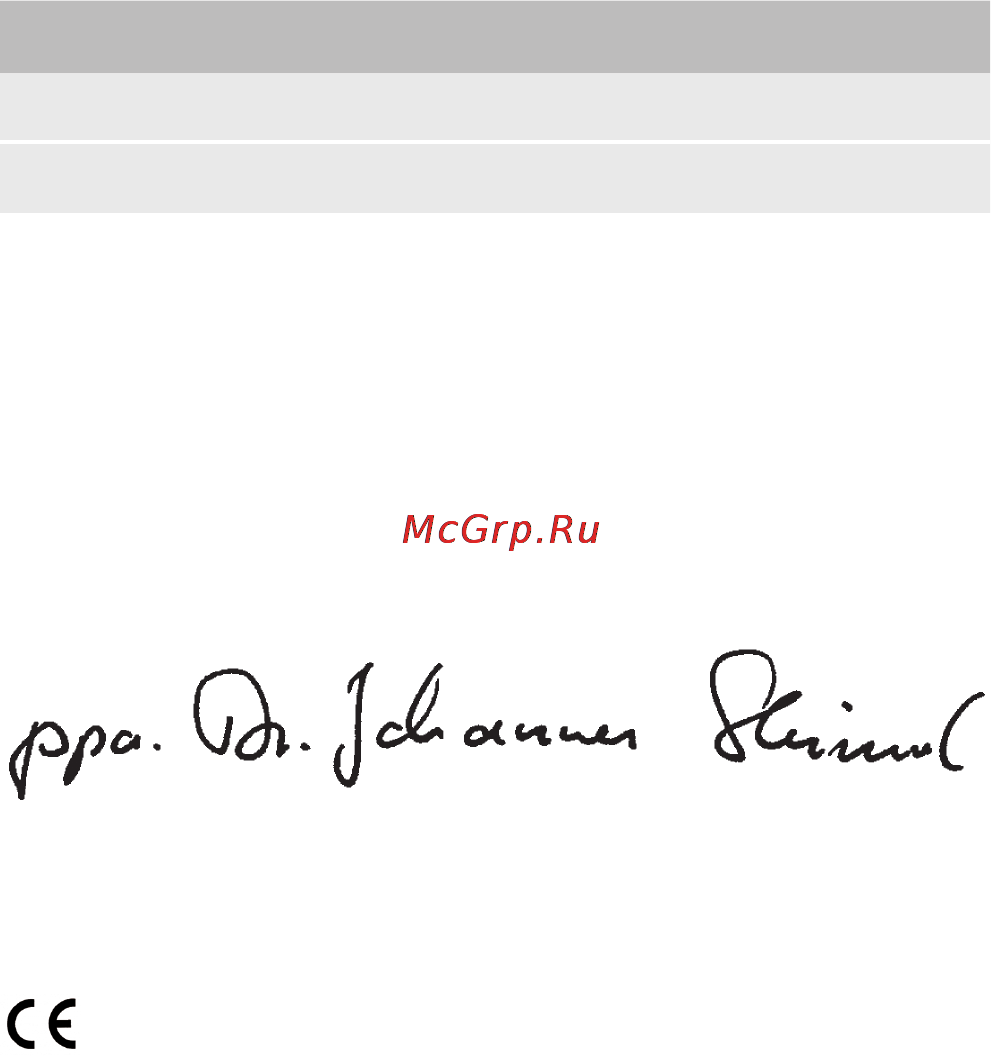 McGrp.Ru
ppa. Dr. Johannes Steimel
CE